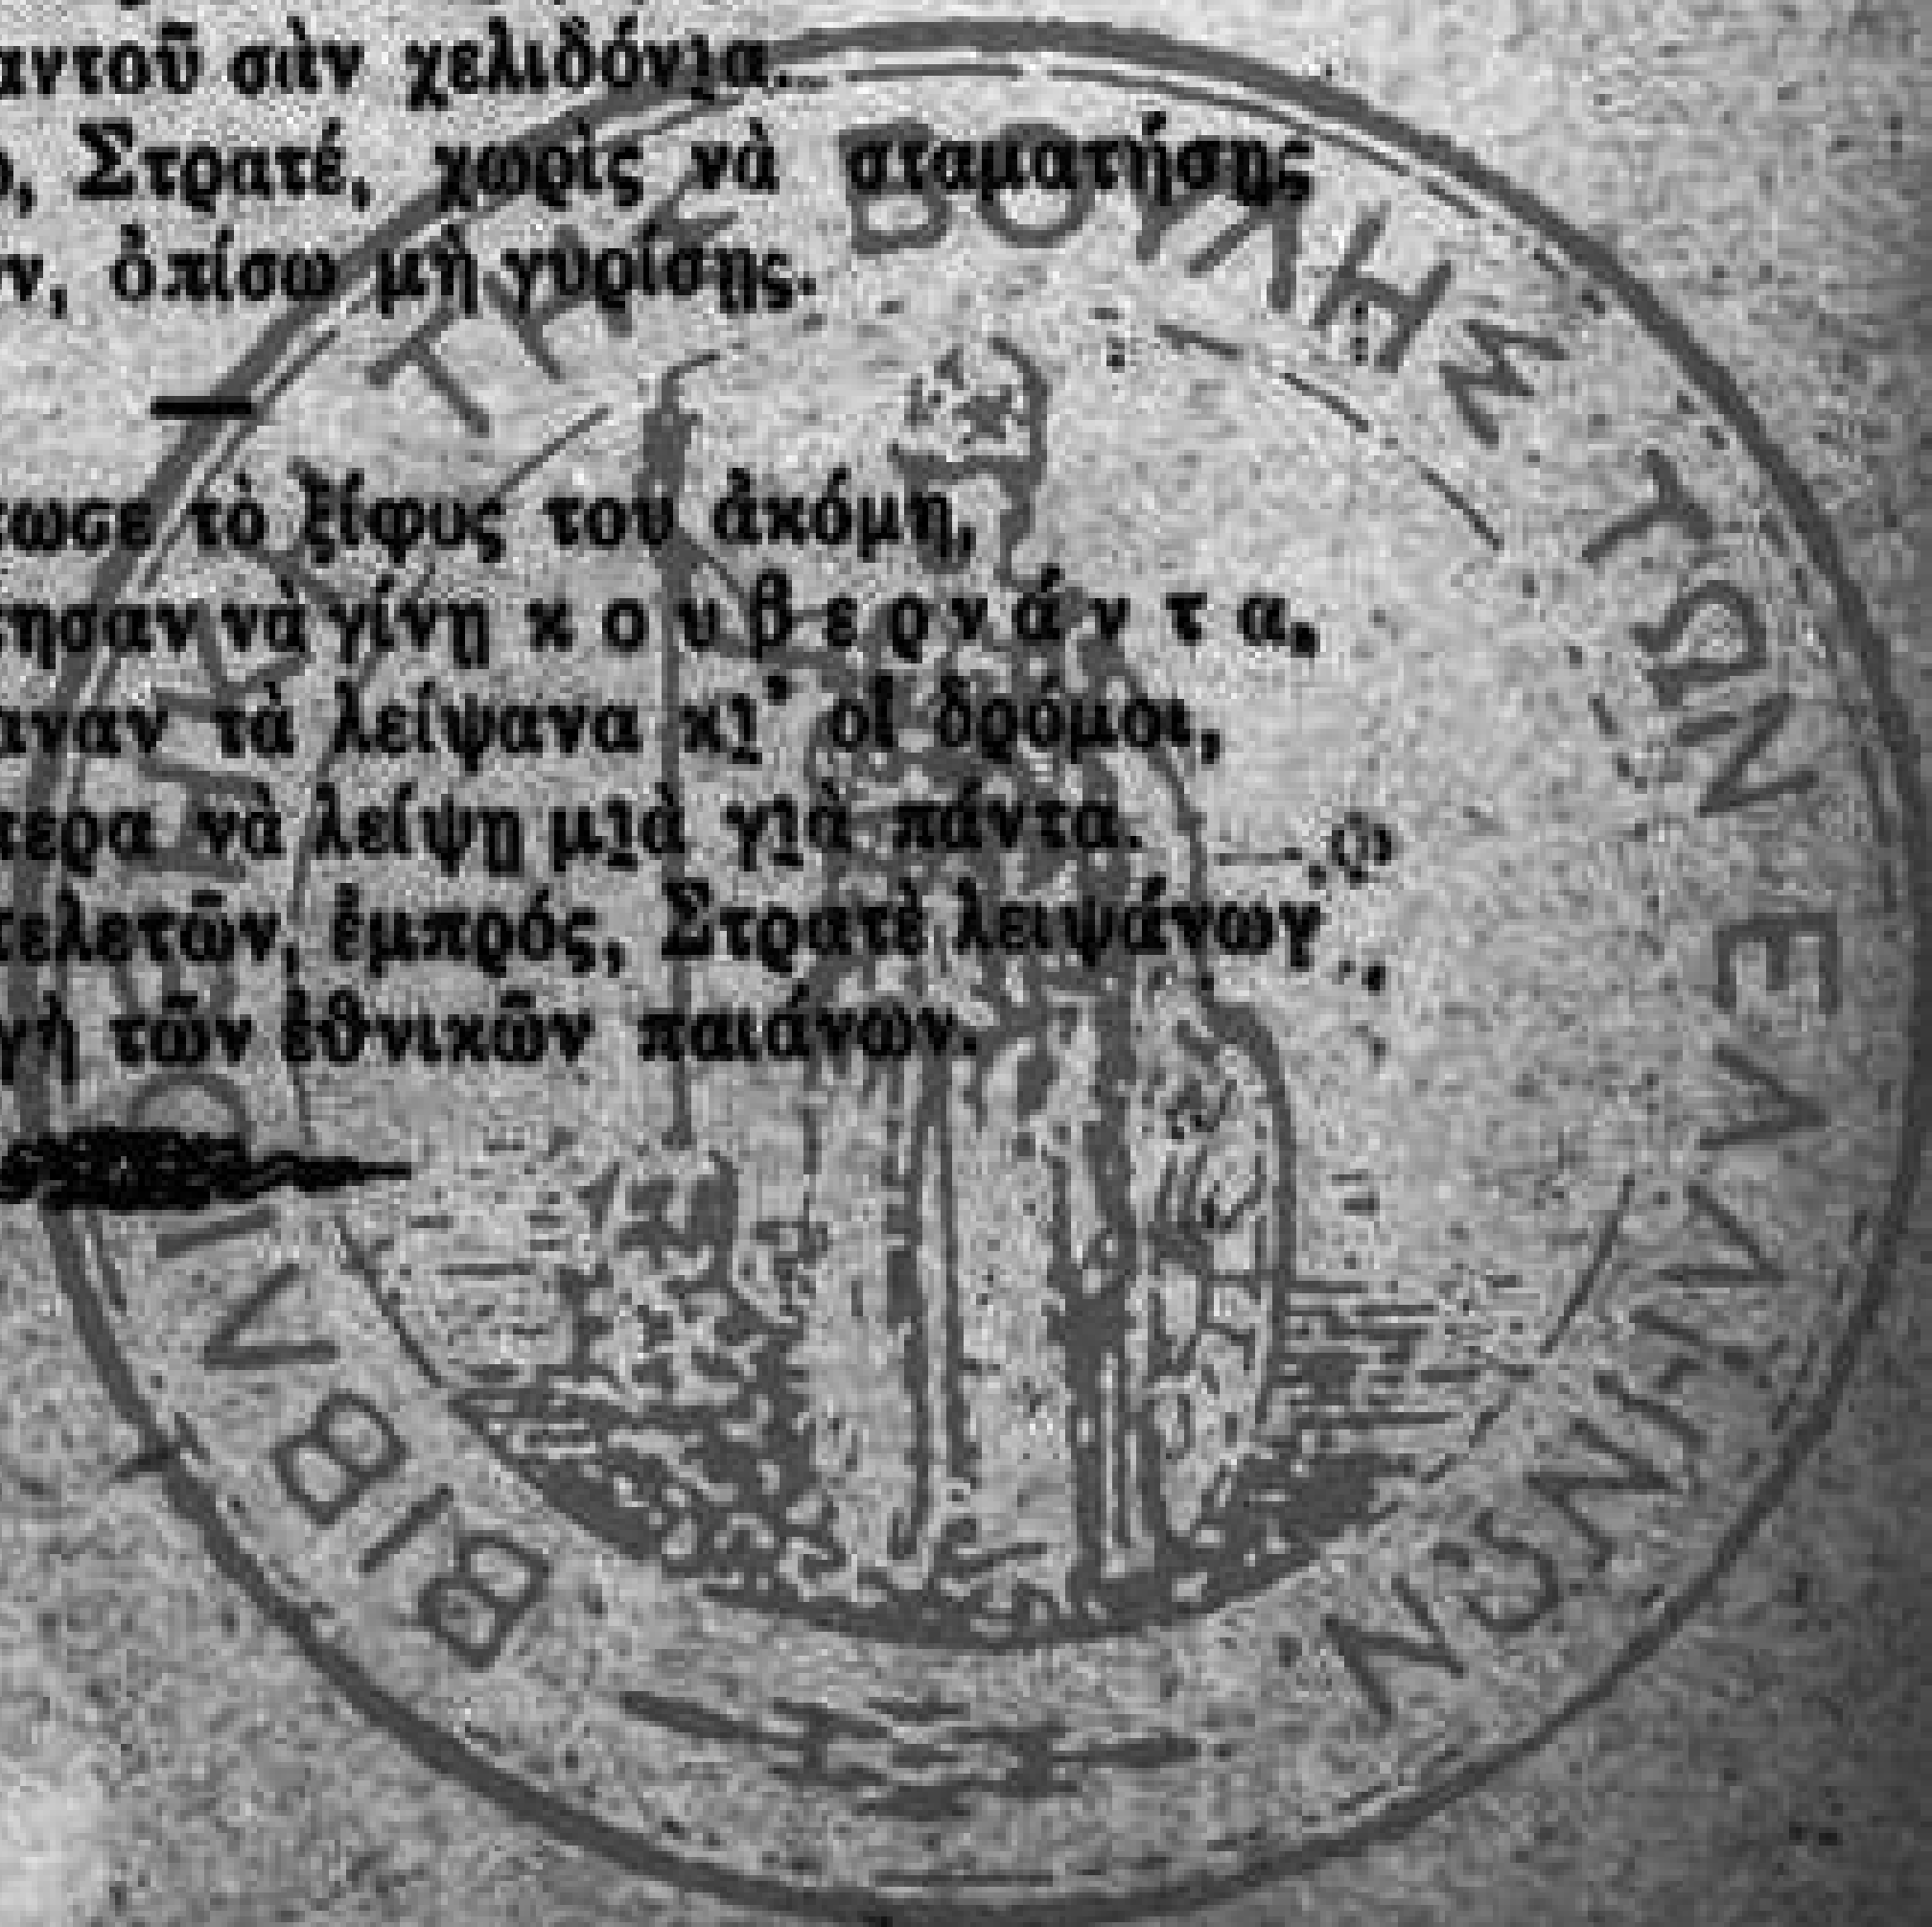 αντοῦ σὰν χελιδόνια...
Στρατέ, χωρὶς νὰ σταματήσῃς
ὀπίσω μὴ γυρίσῃς.
—
τωσε τὸ ξίφος του ἀκόμη,
τησαν νὰ γίνῃ κουβερνάντα,
αναν τὰ λείψανα κι' οἱ δρόμοι,
τερα νὰ λείψῃ μιὰ γιὰ πάντα.
τελετῶν, ἐμπρός, Στρατὲ λειψάνων,
γὴ τῶν ἐθνικῶν παιάνων.
ΒΙΒΛΙΟΘΗΚΗ ΤΗΣ ΒΟΥΛΗΣ ΤΩΝ ΕΛΛΗΝΩΝ